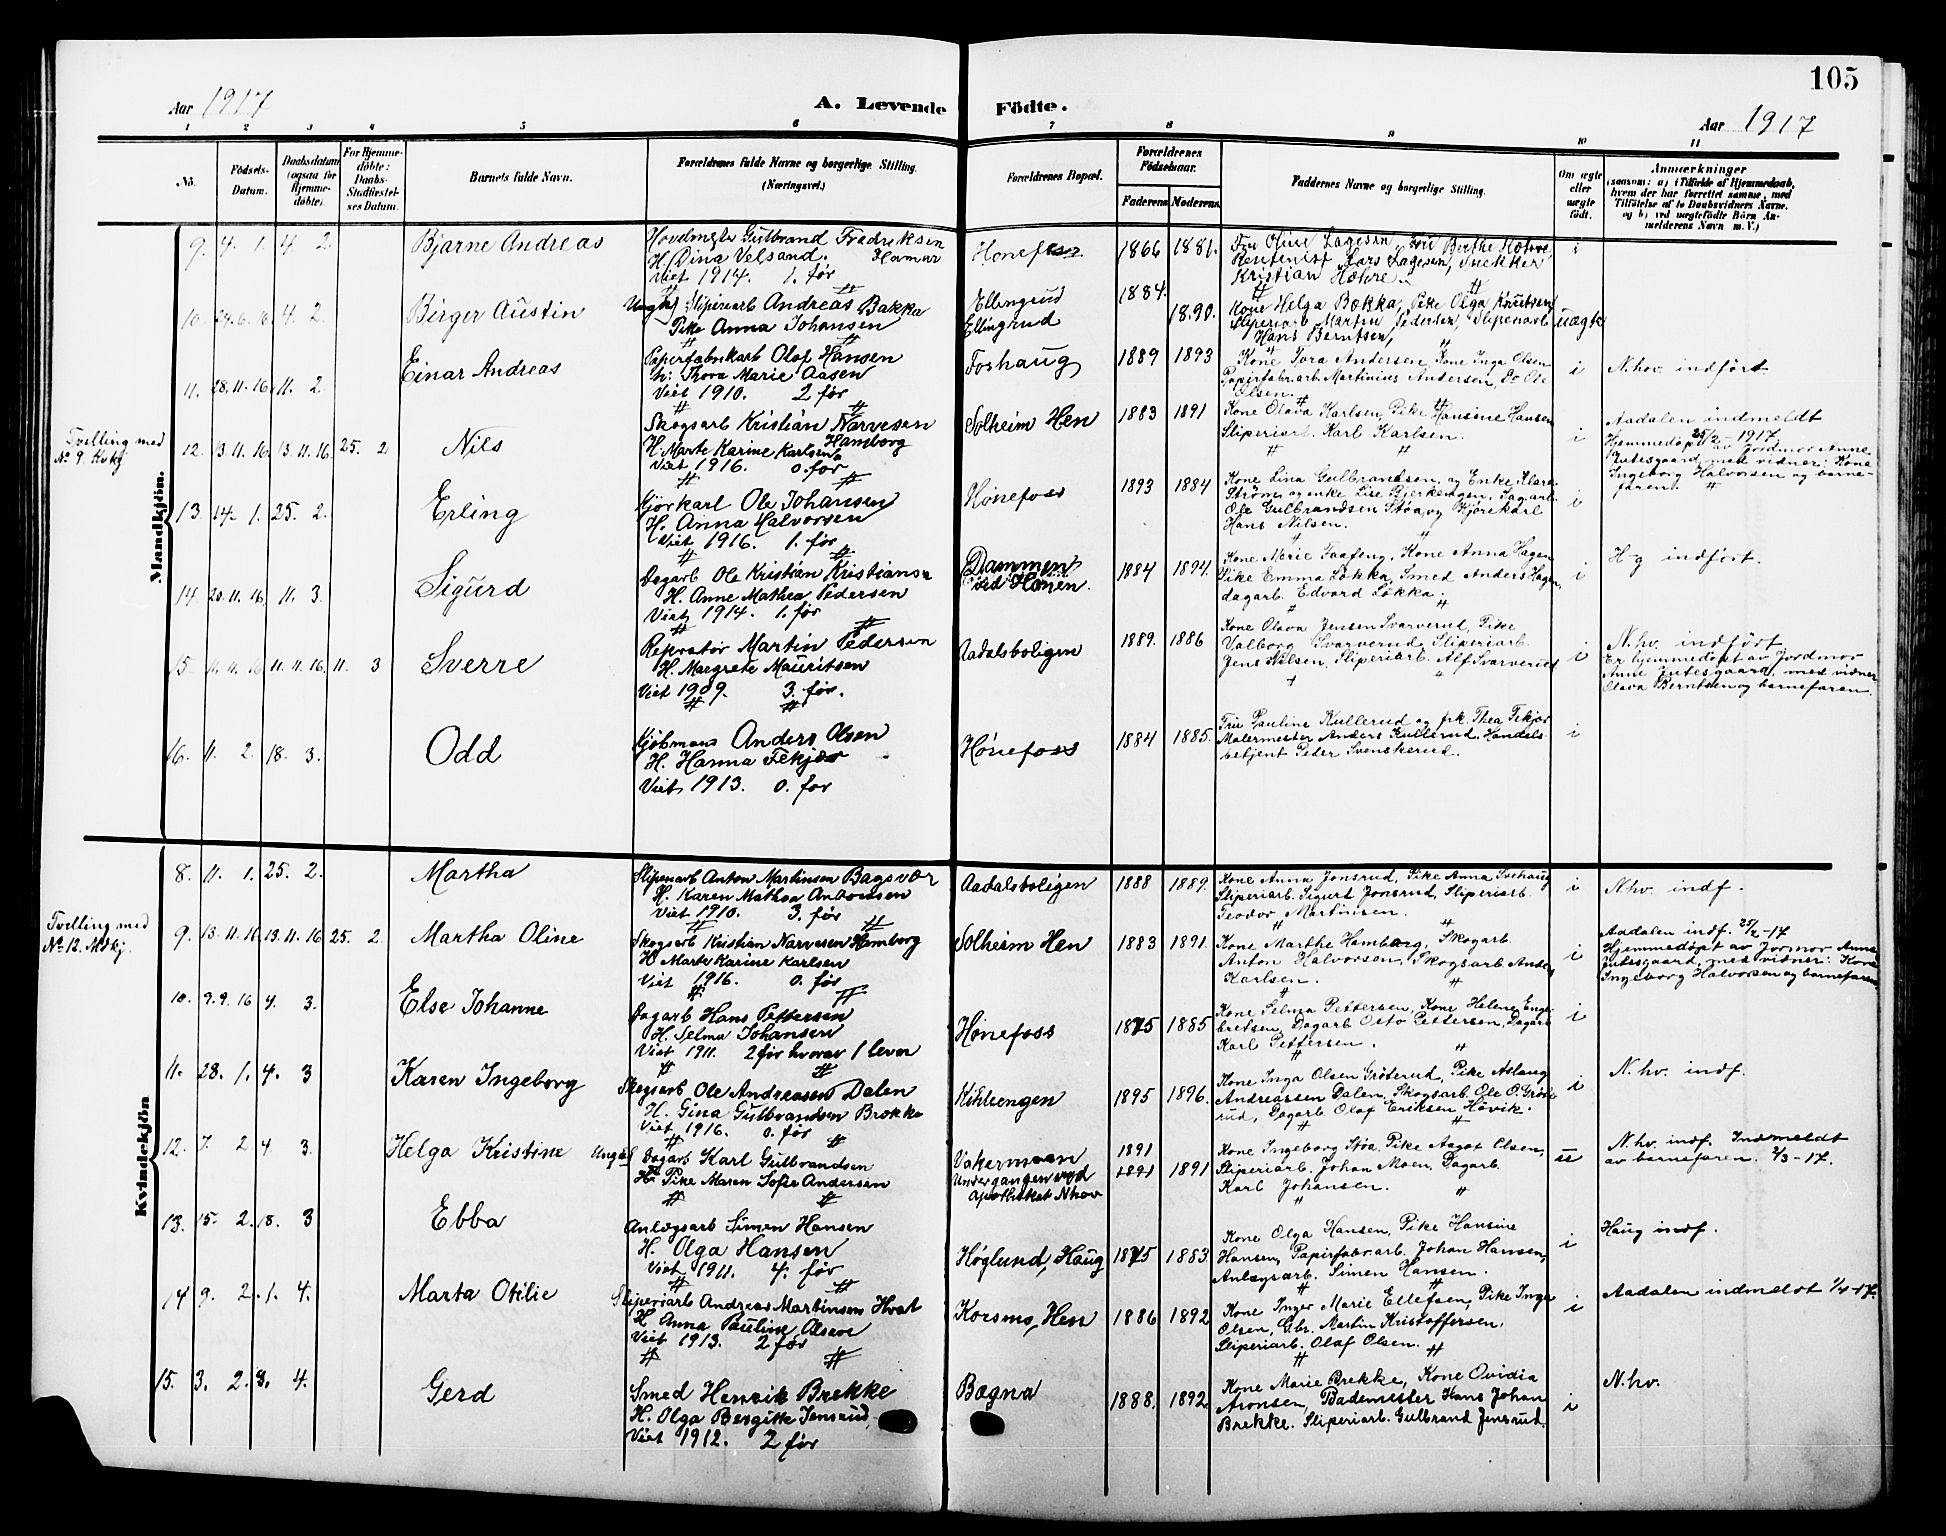 105
Aar 1917
A. Levende Födte.
Aar 1917
1 2 3 4 5 6 7 8 9 10 11
No.
Födsels-
Datum.
Daabsdatum
(ogsaa for
Hjemme-
döbte).
For Hjemme-
döbte:
Daabs-
Stadfæstel-
ses Datum.
Barnets fulde Navn.
Forældrenes fulde Navne og borgerlige Stilling.
(Næringsvei.)
Forældrenes Bopæl.
Forældrenes
Födselsaar.
Faderens Moderens
Faddernes Navne og borgerlige Stilling.
Om ægte
eller
uægte
födt.
Anmærkninger
(saasom: a) i Tilfælde af Hjemmedaab,
hvem der har forrettet samme, med
Tilföielse af to Daabsvidners Navne,
og b) ved uægtefödte Börn An-
melderens Navn m. V.)
Mandkjön.
9. 4. 1. 4 2.
Bjarne Andreas
Gulbrand Fredriksen
H. Dina Velsand. Hamar
Viet 1914. 1. før
Hønefoss
1866 1881.
Fru Oline Lagesen, Fru Berthe Mæhre,
Lars Lagesen, Snekker
Kristian Mæhre.
i
10. 24.6.16. 4. 2.
Birger Austin
Ungk Sliperiarb Andreas Bakka
Pike Anna Johansen
Ellingrud
Ellingrud
1884.
1890.
Kone Helga Bakka, Pike Olga Knutsen
Sliperiarb Martin Pedersen, Sliperiarb
Hans Berntsen,
uægte
11. 28.11.16. 11. 2.
Einar Andreas
Papirfabrikarb Olaf Hansen
H: Thora Marie Aasen
Viet 1910. 2 før
Foshaug
1889 1893
Kone Tora Andersen, Kone Inga Olsen
Papirfabr.arb. Martinius Andersen, Do Ole
Olsen.
i
N.hov. indført
Tvelling med
No 9. Kvkj.
12. 13.11.16. 13.11.16. 25. 2
Nils
Skogsarb Kristian Narvesen
Hamborg
H. Marte Karine Karlsen
Viet 1916. 0. før
Solheim Hen
1883 1891
Kone Olava Karlsen, Pike Hansine Hansen
Sliperiarb. Karl Karlsen.
i
Aadalen indmeldt
25/2 - 1917
Hjemmedøpt av Jordmor Anne
Jutesgaard med vidner: Kone
Ingeborg Halvorsen og barne-
faren.
13. 14. 1. 25. 2.
Erling
Kjørkarl Ole Johansen
H. Anna Halvorsen
Viet 1916. 1. før
Hønefoss
1893 1884
Kone Lina Gulbrandsen, og Enke Klara
Strøm og enke Lise Gjerkengen, Sagarb.
Ole Gulbrandsen Støa, og Kjørekarl
Hans Nilsen.
i
14 20.11.16 11. 3.
Sigurd
Dagarb Ole Kristian Kristiansen
H. Anne Mathea Pedersen
Viet 1914. 1. før
Dammen
ved Hønen.
1884 1894.
Kone Marie Taafeng, Kone Anna Hagen
Pike Emma Løkka, Smed Anders Hagen,
dagarb. Edvard Løkka.
i
H-g indført.
15. 11.11.16 11.11.16. 11. 3
Sverre
Reprator Martin Pedersen
H. Margrete Mauritsen
Viet 1909. 3. før.
Aadalsboligen
1889. 1886
Kone Olava Jensen Svarverud, Pike
Valborg Svarverud, Sliperiarb.
Jens Nilsen, Sliperiarb. Alf Svarverud
i
N.hv. indført
Er hjemmedøpt av Jordmor
Anne Jutesgaard, med vidner
Olava Berntsen og barnefaren.
16. 11. 2. 18. 3.
Odd
Kjøbmans Anders Olsen
H. Hanna Fekjær
Viet 1913. 0. før
Hønefoss
1884 1885.
Fru Pauline Kullerud og frk. Thea Fekjær
Malermester Anders Kullerud, Handels-
betjent Peder Svenskerud.
i
Kvindekjön
8. 11. 1. 25. 2.
Martha
Sliperiarb Anton Martinsen Bagsvær
H. Karen Mathea Antonsen
Viet 1910. 3. før
Aadalsboligen
1888 1889.
Kone Anna Jonsrud, Pike Anna
Sliperiarb. Sigurd Jonsrud, Sliperiarb.
Teodor Martinsen.
i
Nhv. indf.
Tvelling med
No. 12. Mdkj.
9. 13.11.16 13.11.16 25. 2.
Martha Oline
Skogsarb Kristian Narvesen Hamborg
H Marte Karine Karlsen
Viet 1916. 0. før
Solheim Hen
1883 1891.
Kone Marthe Hamborg, Skogarb.
Anton Halvorsen, Skogsarb Anders
Karlsen.
i
Aadalen indf. 25/2-17
Hjemmedøpt av Jormor Anne
Jutesgaard, med vidner: Kone
Ingeborg Halvorsen og barnefaren
10. 9.9.16 4. 3.
Else Johanne
Dagarb Hans Pettersen
H. Selma Johansen
Viet 1911. 2 før hvorav 1 lever
Hønefoss
1875 1885
Kone Selma Pettersen, Kone Helene Enge-
bretsen, Dagarb Otto Pettersen, Dagarb
Karl Pettersen.
i
11. 28. 1. 4. 3
Karen Ingeborg
Skogsarb Ole Andreasen Dalen
H. Gina Gulbrandsen Brokke
Viet 1916. 0. før
1895 1896.
Kone Inga Olsen Grøterud, Pike Aslaug
Andreassen Dalen, Skogsarb. Ole O. Grøte-
rud, Dagarb Olaf Eriksen Høvik.
i
N.hv. indf.
12. 7. 2 4 3.
Helga Kristine
Ungk Dagarb Karl Gulbrandsen
Pike Maren Sofie Andersen
Vakermoen
Undergangen ved
apotheket Nhov
1891
1891 1891
Kone Ingeborg Støa, Pike Aagot Olsen,
Sliperiarb. Johan Moen, Dagarb.
Karl Johansen.
u
N.hv. indf. Indmeldt
av barnefaren. 2/3-17.
13. 15. 2. 18. 3
Ebba
Anlægsarb Simen Hansen
H. Olga Hansen
Viet 1911. 4. før
Høglund, Haug
1875 1883.
Kone Olga Hansen, Pike Hansine
Hansen, Papirfabr.arb. Johan Hansen,
Anlægsarb. Simen Hansen.
i
Haug indf.
14 9. 2. 1. 4.
Marta Otilie
Sliperiarb Andreas Martinsen Hval
H Anna Pauline Olsen
Viet 1913. 2 før
Korsmo, Hen
1886 1892
Kone Inger Marie Ellefsen, Pike Inga
Olsen, Gbr. Martin Kristoffersen,
Sliperiarb. Olaf Olsen.
i
Aadalen indmeldt 1/4-17.
15. 3. 2. 9. 4.
Gerd
Smed Henrik Brekke
H. Olga Bergitte Jensrud,
Viet 1912. 2 før
Bægna
1888. 1892.
Kone Marie Brekke, Kone Ovidia
Aronsen, Bademester Hans Johan
Brekke. Sliperiarb. Gulbrand Jensrud.
i
N.hv.